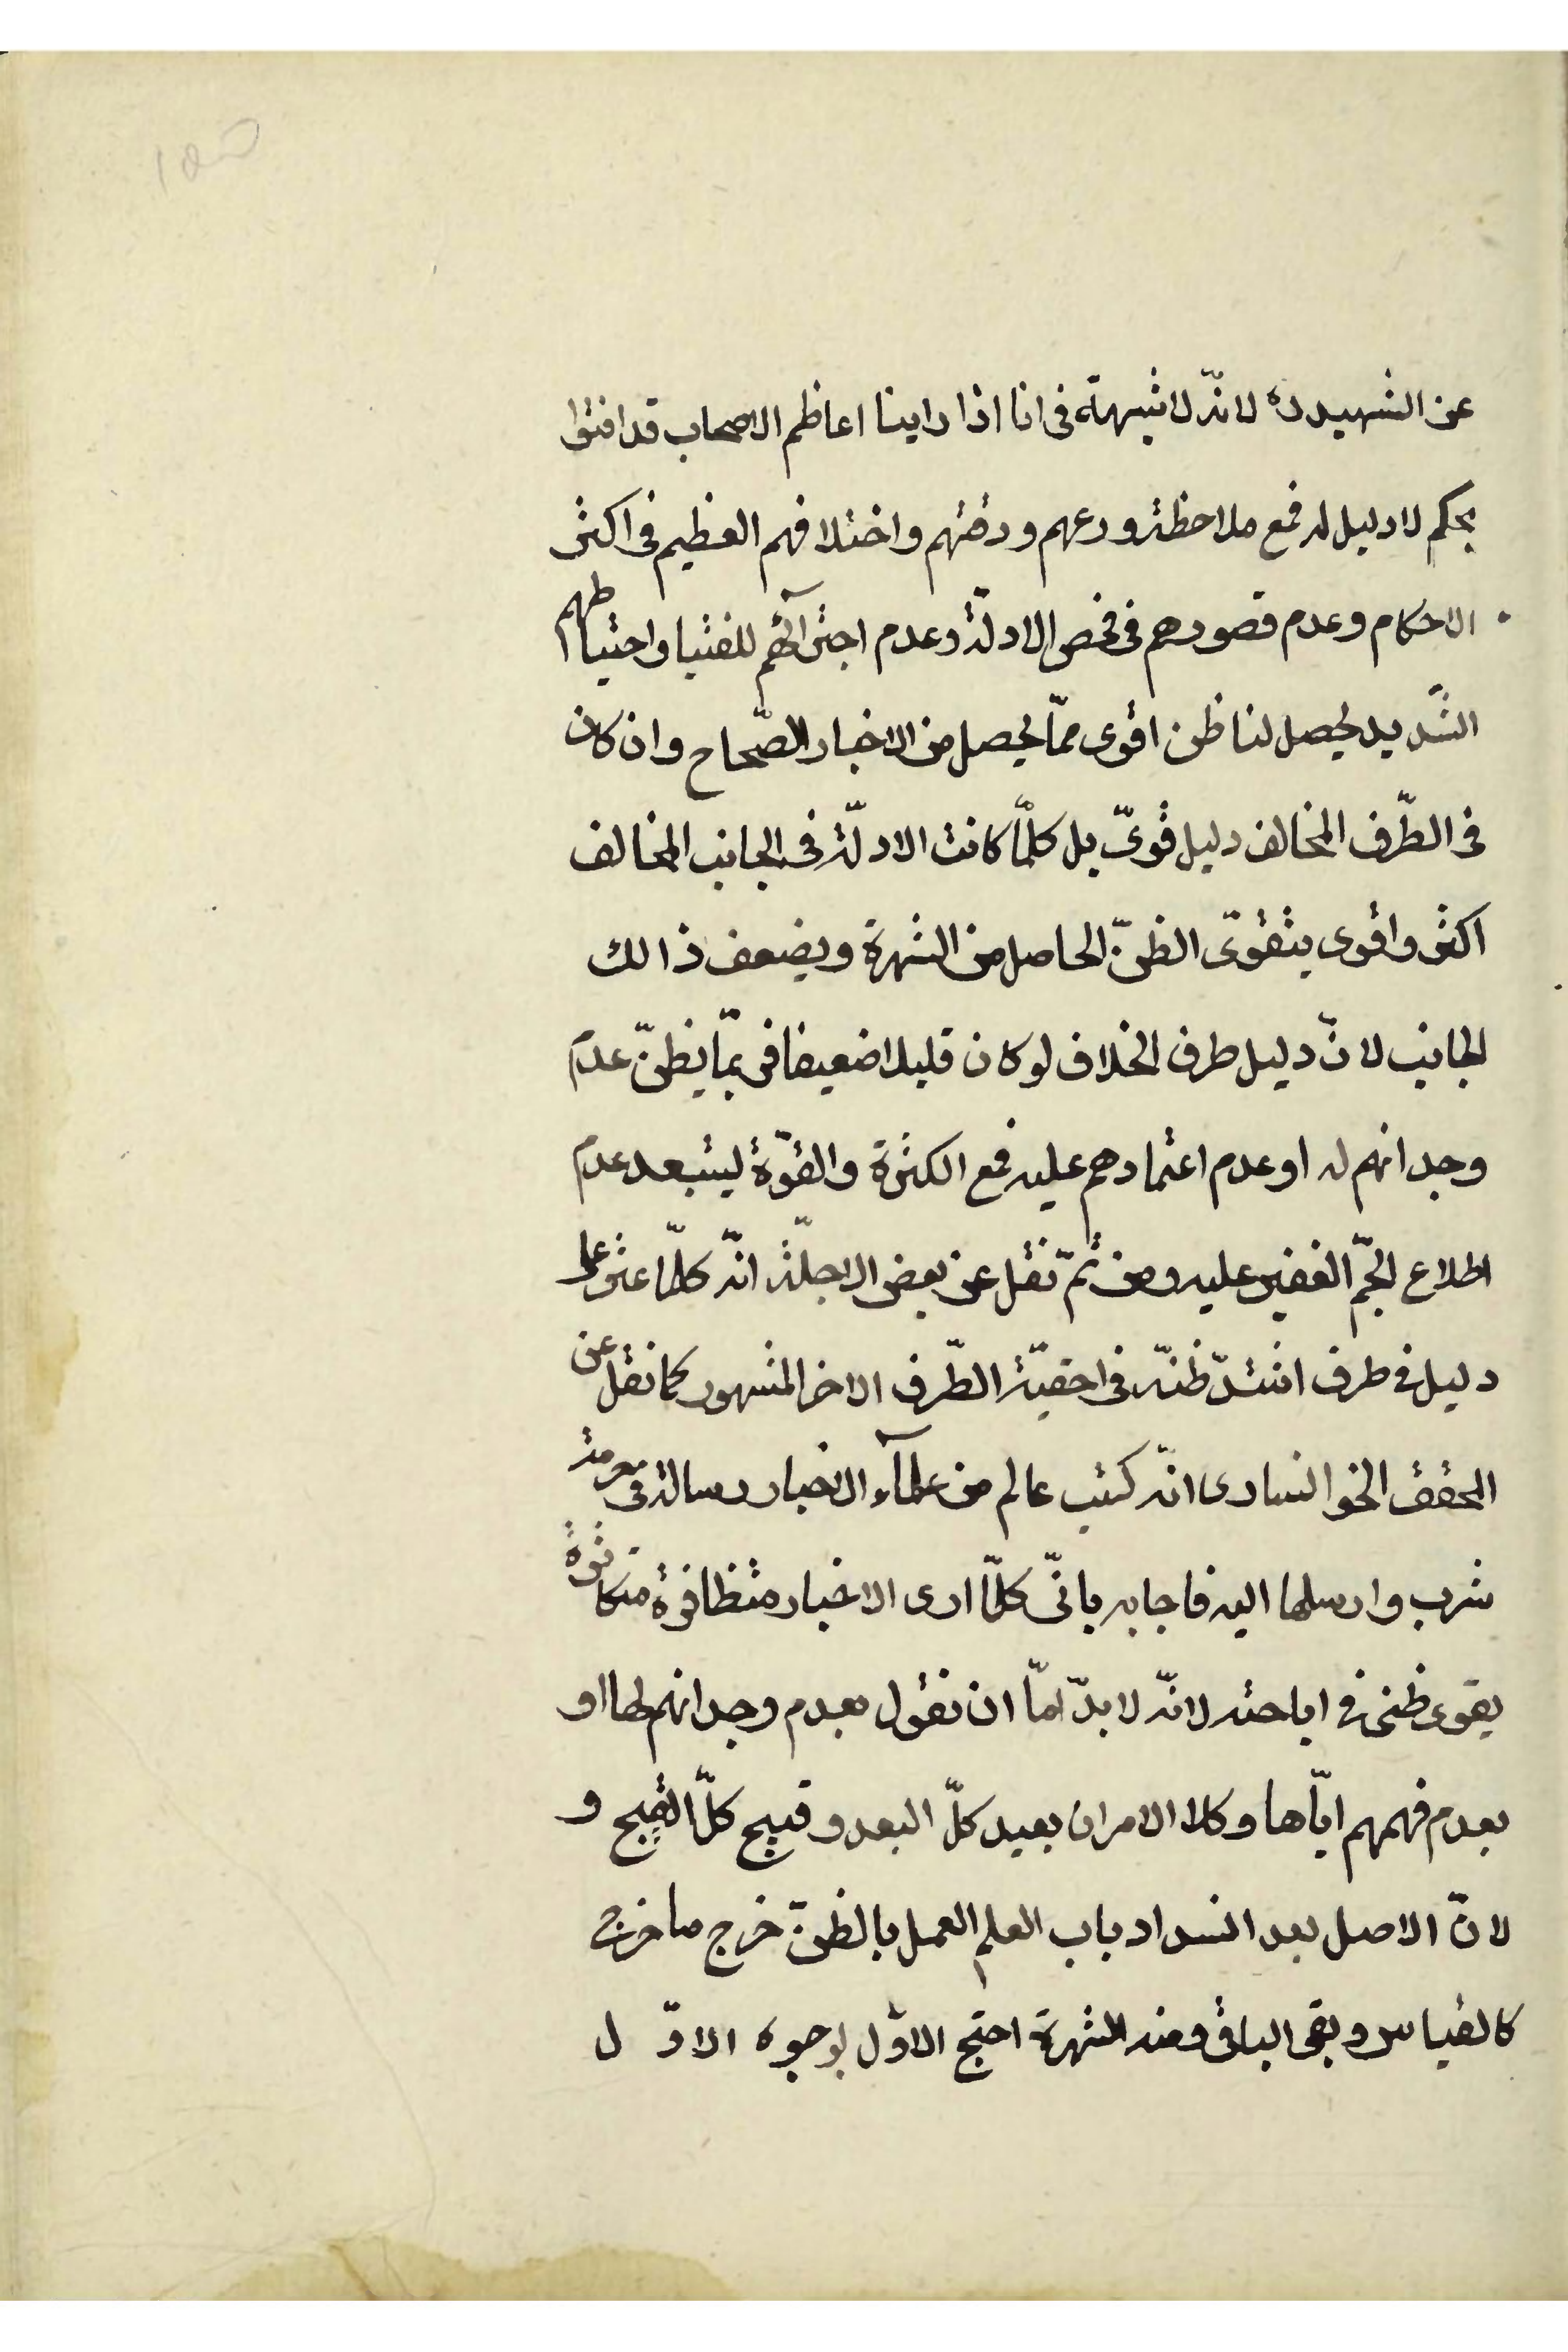 عن الشهيد ره لانّه لا شبهة فى انا اذا راينا اعاظم الاصحاب قد افتوا
بحكم لا دليل له فمع ملاحظة ورعهم ودقتهم واختلافهم العظيم فى اكثر
الاحكام وعدم قصورهم فى فحص الادلّة وعدم اجترآئهم للفتيا واحتياطهم
الشّديد يحصل لنا ظن اقوى ممّا يحصل من الاخبار الصّحاح وان كان
فى الطّرف المخالف دليل قوىّ بل كلّما كانت الادلّة فى الجانب المخالف
اكثر واقوى يتقوّى الظنّ الحاصل من الشهرة ويضعف ذالك
الجانب لانّ دليل طرف الخلاف لو كان قليلا ضعيفا فربّما يظنّ عدم
وجدانهم له او عدم اعتمادهم عليه فمع الكثرة والقوّة يستبعد عدم
اطلاع الجمّ الغفير عليه ومن ثمّ نقل عن بعض الاجلّة انّه كلّما عثر على
دليل فى طرف اشتدّ ظنّه فى احقيّة الطّرف الاخر المشهور كما نقل عن
المحقق الخوانسارى انّه كتب عالم من علمآء الاخبار رسالة فى حرمة
شرب وارسلها اليه فاجابه بانّى كلّما ارى الاخبار متظافرة متكاثرة
يقوى ظنى فى اباحته لانّه لا بدّ امّا ان نقول بعدم وجدانهم لها او
بعدم فهمهم ايّاها وكلا الامران بعيد كلّ البعد وقبيح كلّ القبح و
لانّ الاصل بعد انسداد باب العلم العمل بالظنّ خرج ما خرج
كالقياس وبقى الباقى ومنه الشهرة احتج الاوّل بوجوه الاوّل